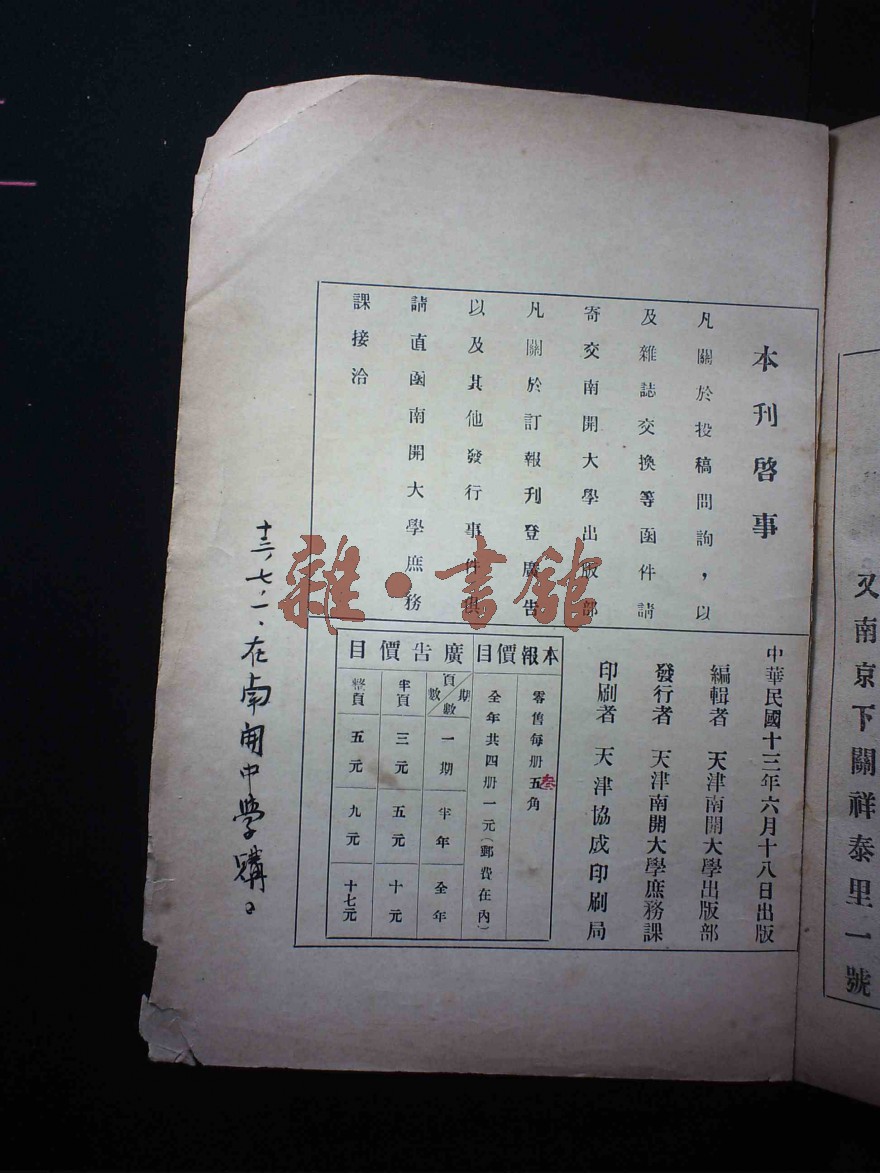 又南京下關祥泰里一號
本刊啓事
凡關於投稿問詢，以
及雜誌交換等函件請
寄交南開大學出版部
凡關於訂報刊登廣告
以及其他發行事件俱
請直函南開大學庶務
課接洽
中華民國十三年六月十八日出版
編輯者 天津南開大學出版部
發行者 天津南開大學庶務課
印刷者 天津協成印刷局
本報價目
零售每册五角
叁
全年共四册一元(郵費在內)
廣告價目
期數 頁數 一期 半年 全年
半頁 三元 五元 十元
整頁 五元 九元 十七元
十三、七、一、在南開中學購。
雜·書館